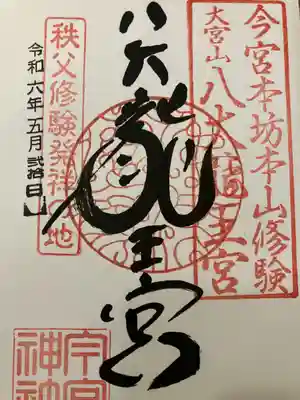 今宮本坊本山修験
大宮山
八大龍王宮
八大龍王宮
秩父修験発祥之地
令和六年五月弐拾日
今宮
神社